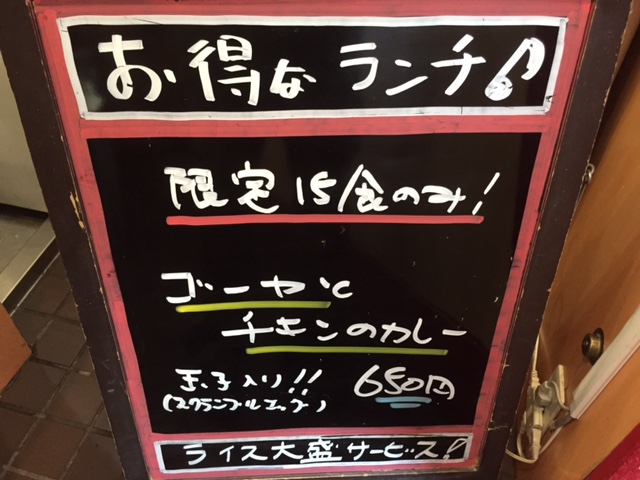 お得なランチ!
限定15食のみ!
ゴーヤと
チキンのカレー
玉子入り!! 650円
(スクランブルエッグ)
ライス大盛サービス!